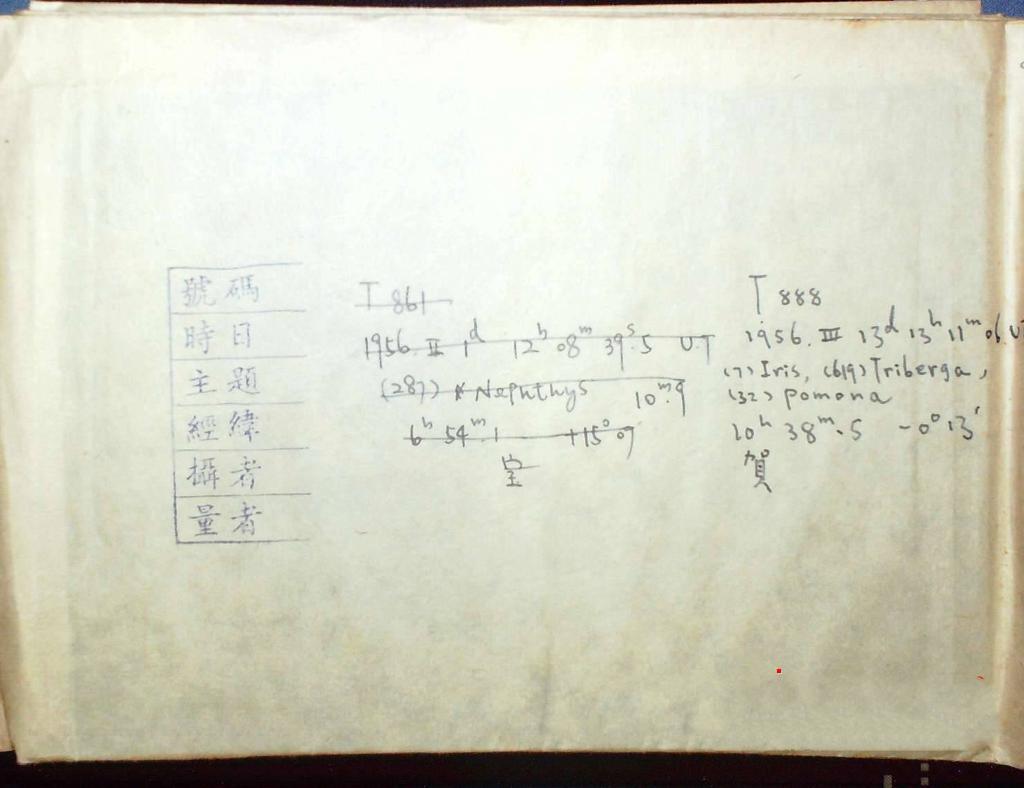 號碼
時日
主題
經緯
攝者
量者
T 861
1956. II 1d 12h 08m 39s.5 U.T
(287) * Nephthys 10m.9
6h 54m.1 +15°07
T 888
1956. III 13d 13h 11m 06. UT
(7) Iris, (619) Triberga,
(32) Pomona
10h 38m.5 -0°13'
賀